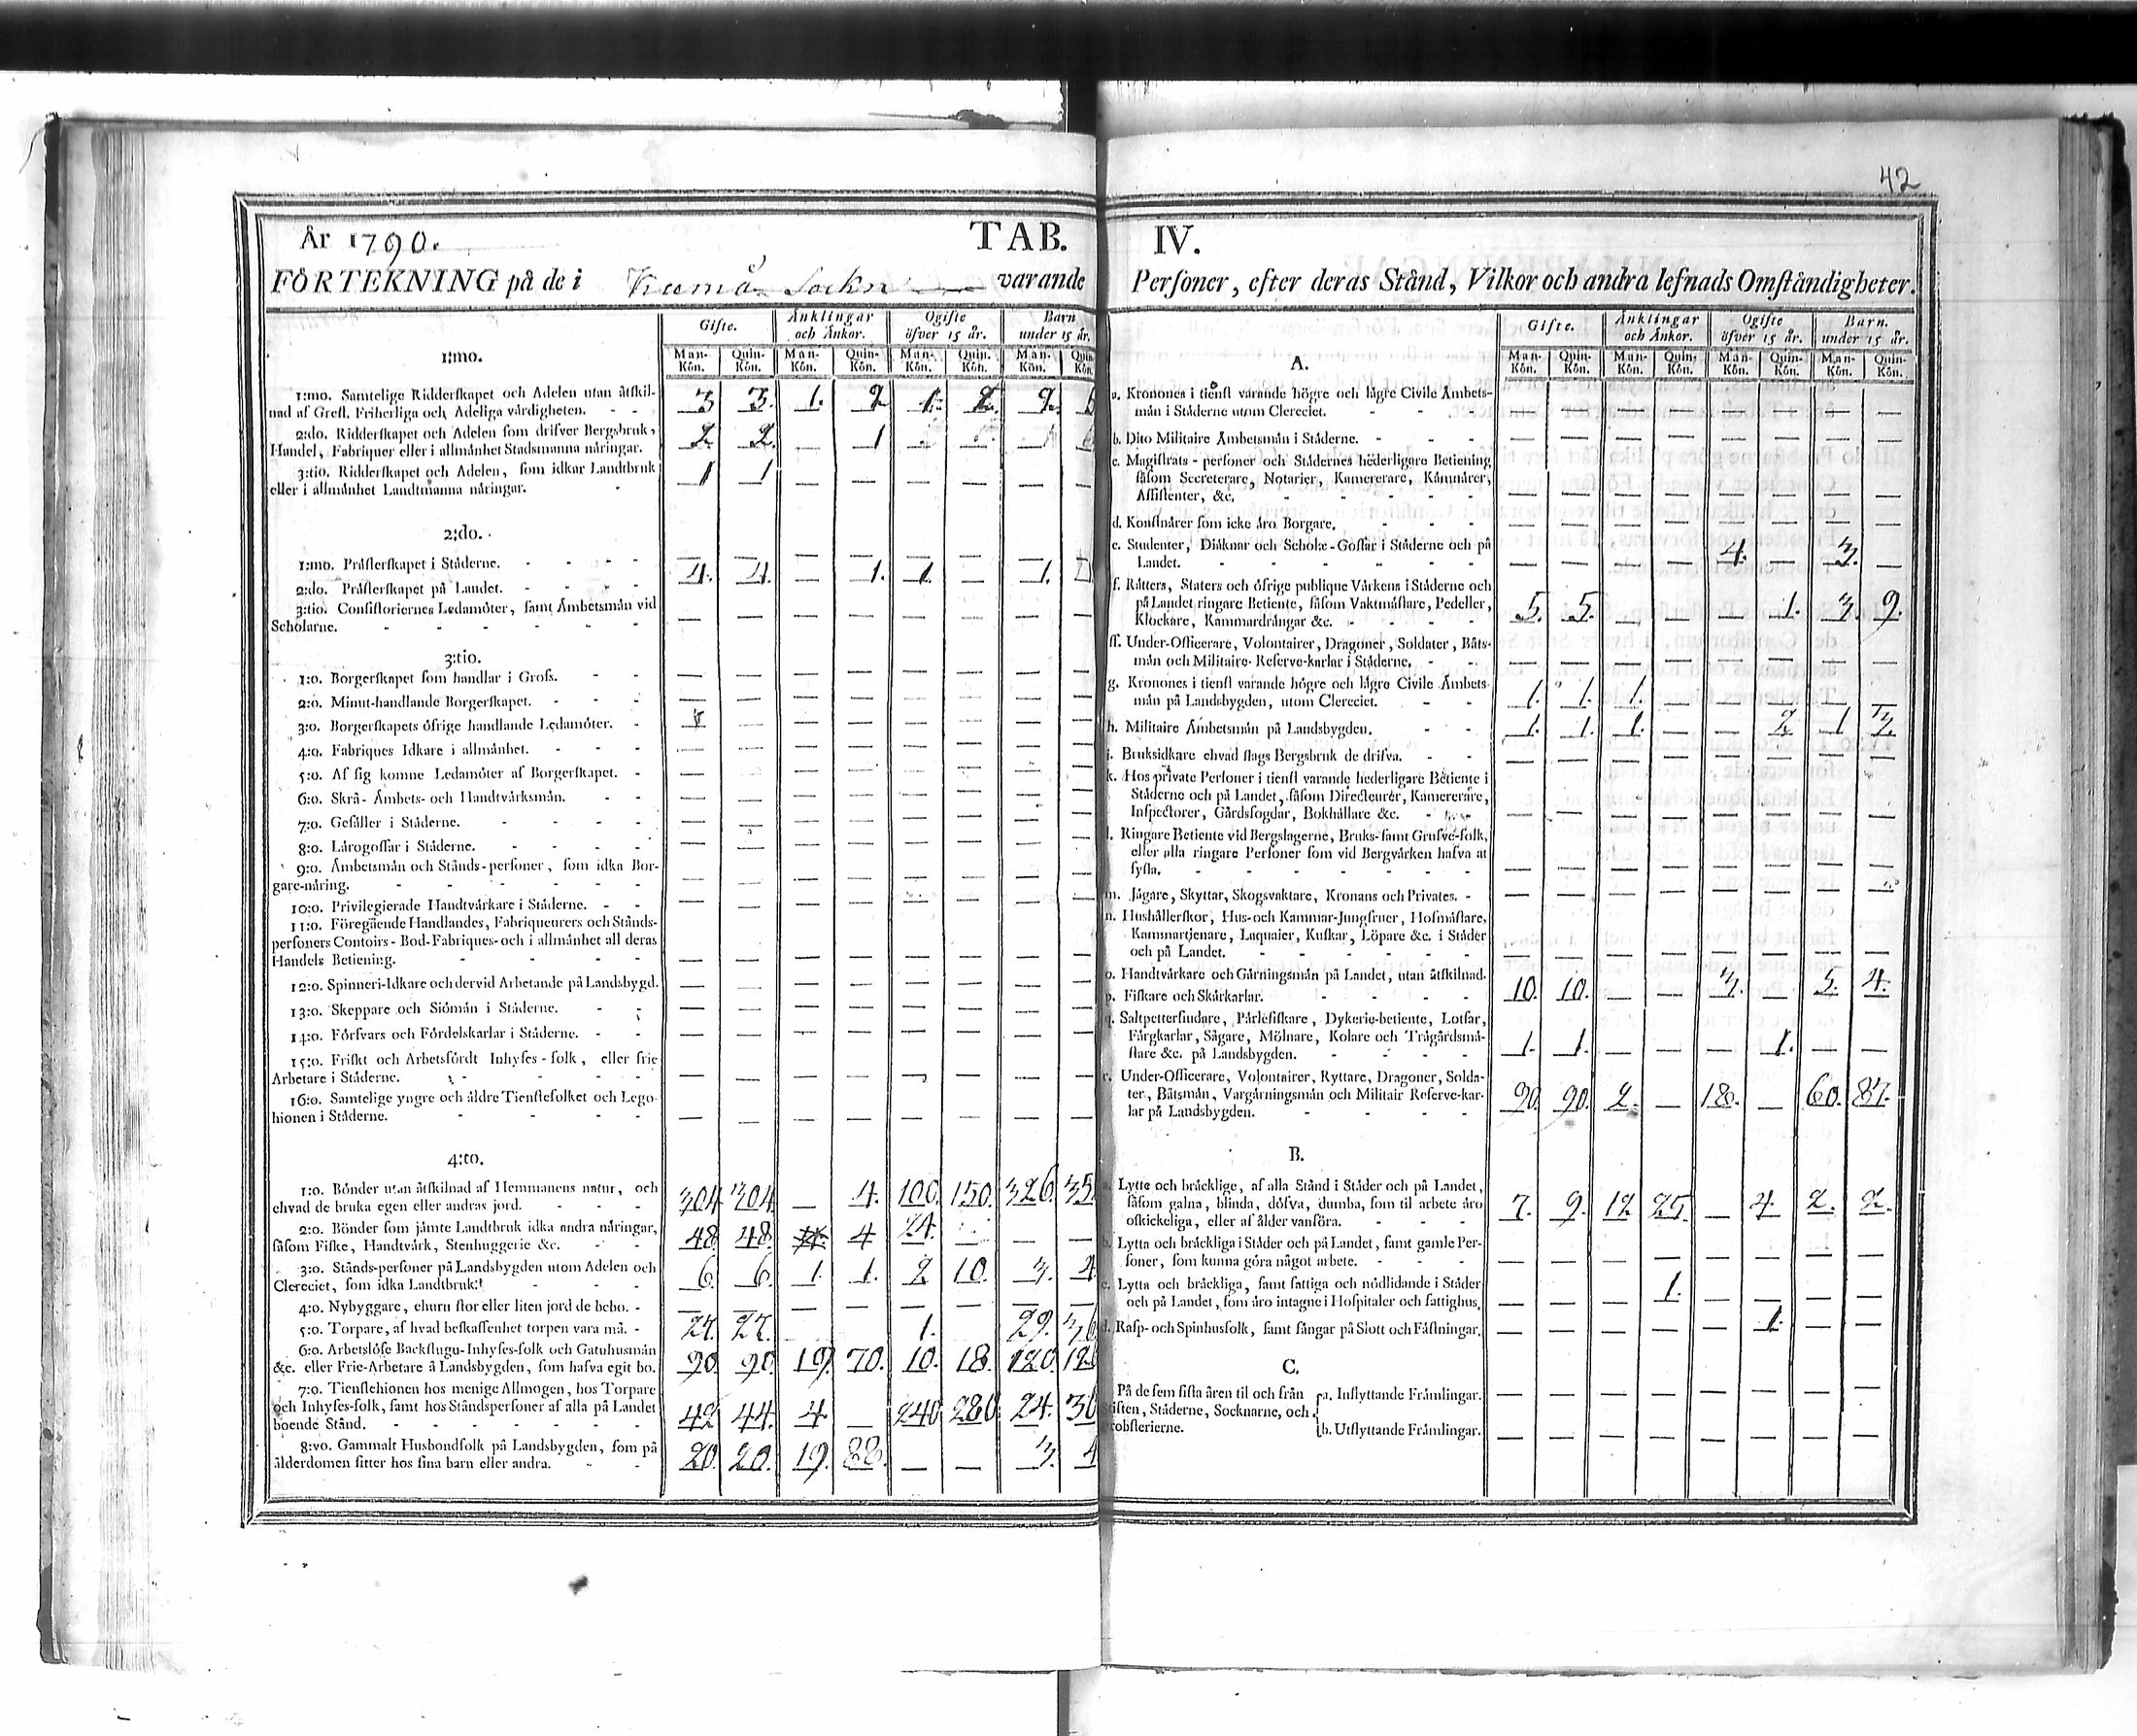 42
År 1790. TAB. IV.
FÖRTEKNING på de i Socken varande Personer, efter deras Stånd, Vilkor och andra lefnads Omståndigheter.
Gifte. Änklingar och Änkor. Ogifte öfver 15 år. Barn under 15 år.
Man-Kön. Quin-Kön. Man-Kön. Quin-Kön. Man-Kön. Quin-Kön. Man-Kön. Quin-Kön.
1:mo.
1:mo. Samtelige Ridderskapet och Adelen utan åtskil-
nad af Grefl. Friherliga och Adeliga vårdigheten. - - 3 3. 1. 2 1. 2. 2.
2:do. Ridderskapet och Adelen som drifver Bergsbruk,
Handel, Fabriquer eller i allmånhet Stadsmanna nåringar. 2 2. — 1
3:tio. Ridderskapet och Adelen, som idkar Landtbruk
eller i allmånhet Landtmanna nåringar. - 1 1
2:do.
1:mo. Pråsterskapet i Ståderne. - - - - — — — — — — —
2:do. Pråsterskapet på Landet. - - - - 4. 4. — 1. 1. — 1.
3:tio. Consistoriernes Ledamöter, samt Åmbetsmån vid
Scholarne. - - - - - - — — — — — — — —
3:tio.
1:o. Borgerskapet som handlar i Gross. - - — — — — — — — —
2:o. Minut-handlande Borgerskapet. - - - — — — — — — — —
3:o. Borgerskapets öfrige handlande Ledamöter. - — — — — — — —
4:o. Fabriques Idkare i allmånhet. - - - — — — — — — — —
5:o. Af sig komne Ledamöter af Borgerskapet. - — — — — — — — —
6:o. Skrå- Åmbets- och Handtvårksmån. - - — — — — — — — —
7:o. Gesåller i Ståderne. - - - - — — — — — — — —
8:o. Lårogossar i Ståderne. - - - - — — — — — — — —
9:o. Åmbetsmån och Stånds-personer, som idka Bor-
gare-nåring. - - - - - - — — — — — — — —
10:o. Privilegierade Handtvårkare i Ståderne. - - — — — — — — — —
11:o. Föregående Handlandes, Fabriqueurers och Stånds-
personers Contoirs- Bod-Fabriques- och i allmånhet all deras
Handels Betiening. - - - - — — — — — — — —
12:o. Spinneri-Idkare och dervid Arbetande på Landsbygd. — — — — — — — —
13:o. Skeppare och Siömån i Ståderne. - - — — — — — — — —
14:o. Försvars och Fördelskarlar i Ståderne. - - — — — — — — — —
15:o. Friskt och Arbetsfördt Inhyses-folk, eller frie
Arbetare i Ståderne. - - - - — — — — — — — —
16:o. Samtelige yngre och åldre Tienstefolket och Lego-
hionen i Ståderne. - - - - — — — — — — — —
4:to.
1:o. Bönder utan åtskilnad af Hemmanens natur, och
ehvad de bruka egen eller andras jord. - - - 304 304 — 4. 100. 150. 326.
2:o. Bönder som jåmte Landtbruk idka andra nåringar,
såsom Fiske, Handtvårk, Stenhuggerie &c. - - 48. 48. 4 24. — —
3:o. Stånds-personer på Landsbygden utom Adelen och
Clereciet, som idka Landtbruk. - - - 6. 6. 1. 1. 2 10. 3. 4
4:o. Nybyggare, ehuru stor eller liten jord de bebo. - — — — — — — — —
5:o. Torpare, af hvad beskaffenhet torpen vara må. - 27. 27. 1. 29.
6:o. Arbetslöse Backstugu-Inhyses-folk och Gatuhusmån
&c. eller Frie-Arbetare å Landsbygden, som hafva egit bo. 90. 90. 19. 70. 10. 18. 120.
7:o. Tienstehionen hos menige Allmogen, hos Torpare
och Inhyses-folk, samt hos Ståndspersoner af alla på Landet
boende Stånd. - - - - - - 42 44. 4. — 240 280 24.
8:vo. Gammalt Husbondfolk på Landsbygden, som på
ålderdomen sitter hos sina barn eller andra. - - 20. 20. 19. 88. — — 3. 4
Gifte. Änklingar och Änkor. Ogifte öfver 15 år. Barn. under 15 år.
Man-Kön. Quin-Kön. Man-Kön. Quin-Kön. Man-Kön. Quin-Kön. Man-Kön. Quin-Kön.
A.
a. Kronones i tienst varande högre och lågre Civile Åmbets-
mån i Ståderne utom Clereciet. - - - — — — — — — — —
b. Dito Militaire Åmbetsmån i Ståderne. - - - — — — — — — — —
c. Magistrats-personer och Stådernes hederligare Betiening
såsom Secreterare, Notarier, Kamererare, Kåmnårer,
Assistenter, &c. - - - - - — — — — — — — —
d. Konstnårer som icke åro Borgare. - - - — — — — — — — —
e. Studenter, Diåknar och Scholæ-Gossar i Ståderne och på
Landet. - - - - - - — — — — 4. — 3. —
f. Råtters, Staters och öfrige publique Vårkens i Ståderne och
på Landet ringare Betiente, såsom Vaktmåstare, Pedeller,
Klockare, Kammardrångar &c. - - - - 5. 5. — — — 1. 3. 9.
ff. Under-Officerare, Volontairer, Dragoner, Soldater, Båts-
mån och Militaire-Reserve-karlar i Ståderne. - - — — — — — — — —
g. Kronones i tienst varande högre och lågre Civile Åmbets-
mån på Landsbygden, utom Clereciet. - - 1. 1. 1. — — — — —
h. Militaire Åmbetsmån på Landsbygden. - - 1. 1. 1. — — 2 1 3
i. Bruksidkare ehvad slags Bergsbruk de drifva. - - — — — — — — — —
k. Hos private Personer i tienst varande hederligare Betiente i
Ståderne och på Landet, såsom Directeurer, Kamererare,
Inspectorer, Gårdsfogdar, Bokhållare &c. - — — — — — — — —
l. Ringare Betiente vid Bergslagerne, Bruks- samt Grufve-folk,
eller alla ringare Personer som vid Bergvårken hafva at
sysla. - - - - - - — — — — — — — —
m. Jågare, Skyttar, Skogsvaktare, Kronans och Privates. - — — — — — — — —
n. Hushållerskor, Hus- och Kammar-Jungfruer, Hofmåstare,
Kammartjenare, Laquaier, Kuskar, Löpare &c. i Ståder
och på Landet. - - - - - — — — — — — — —
o. Handtvårkare och Gårningsmån på Landet, utan åtskilnad. 10. 10. — — 3. — 3. 4.
p. Fiskare och Skårkarlar. - - - -
q. Saltpettersiudare, Pårlefiskare, Dykerie-betiente, Lotsar,
Fårgkarlar, Sågare, Mölnare, Kolare och Trågårdsmå-
stare &c. på Landsbygden. - - - - 1. 1. — — — 1. — —
r. Under-Officerare, Volontairer, Ryttare, Dragoner, Solda-
ter, Båtsmån, Vargårningsmån och Militair Reserve-kar-
lar på Landsbygden. - - - - 90. 90. 2. — 18. — 60. 87.
B.
a. Lytte och bråcklige, af alla Stånd i Ståder och på Landet,
såsom galna, blinda, döfva, dumba, som til arbete åro
oskickeliga, eller af ålder vanföra. - - - 7. 9. 12 25. — 4. 2. 2.
b. Lytta och bråckliga i Ståder och på Landet, samt gamle Per-
soner, som kunna göra något arbete. - - - — — — — — — — —
c. Lytta och bråckliga, samt fattiga och nödlidande i Ståder
och på Landet, som åro intagne i Hospitaler och fattighus. — — — 1. — — — —
d. Rasp- och Spinhusfolk, samt fångar på Slott och Fåstningar. — — — — — 1. — —
C.
På de fem sista åren til och från a. Inflyttande Fråmlingar. — — — — — — — —
Stiften, Ståderne, Socknarne, och
Probsterierne. b. Utflyttande Fråmlingar. — — — — — — — —